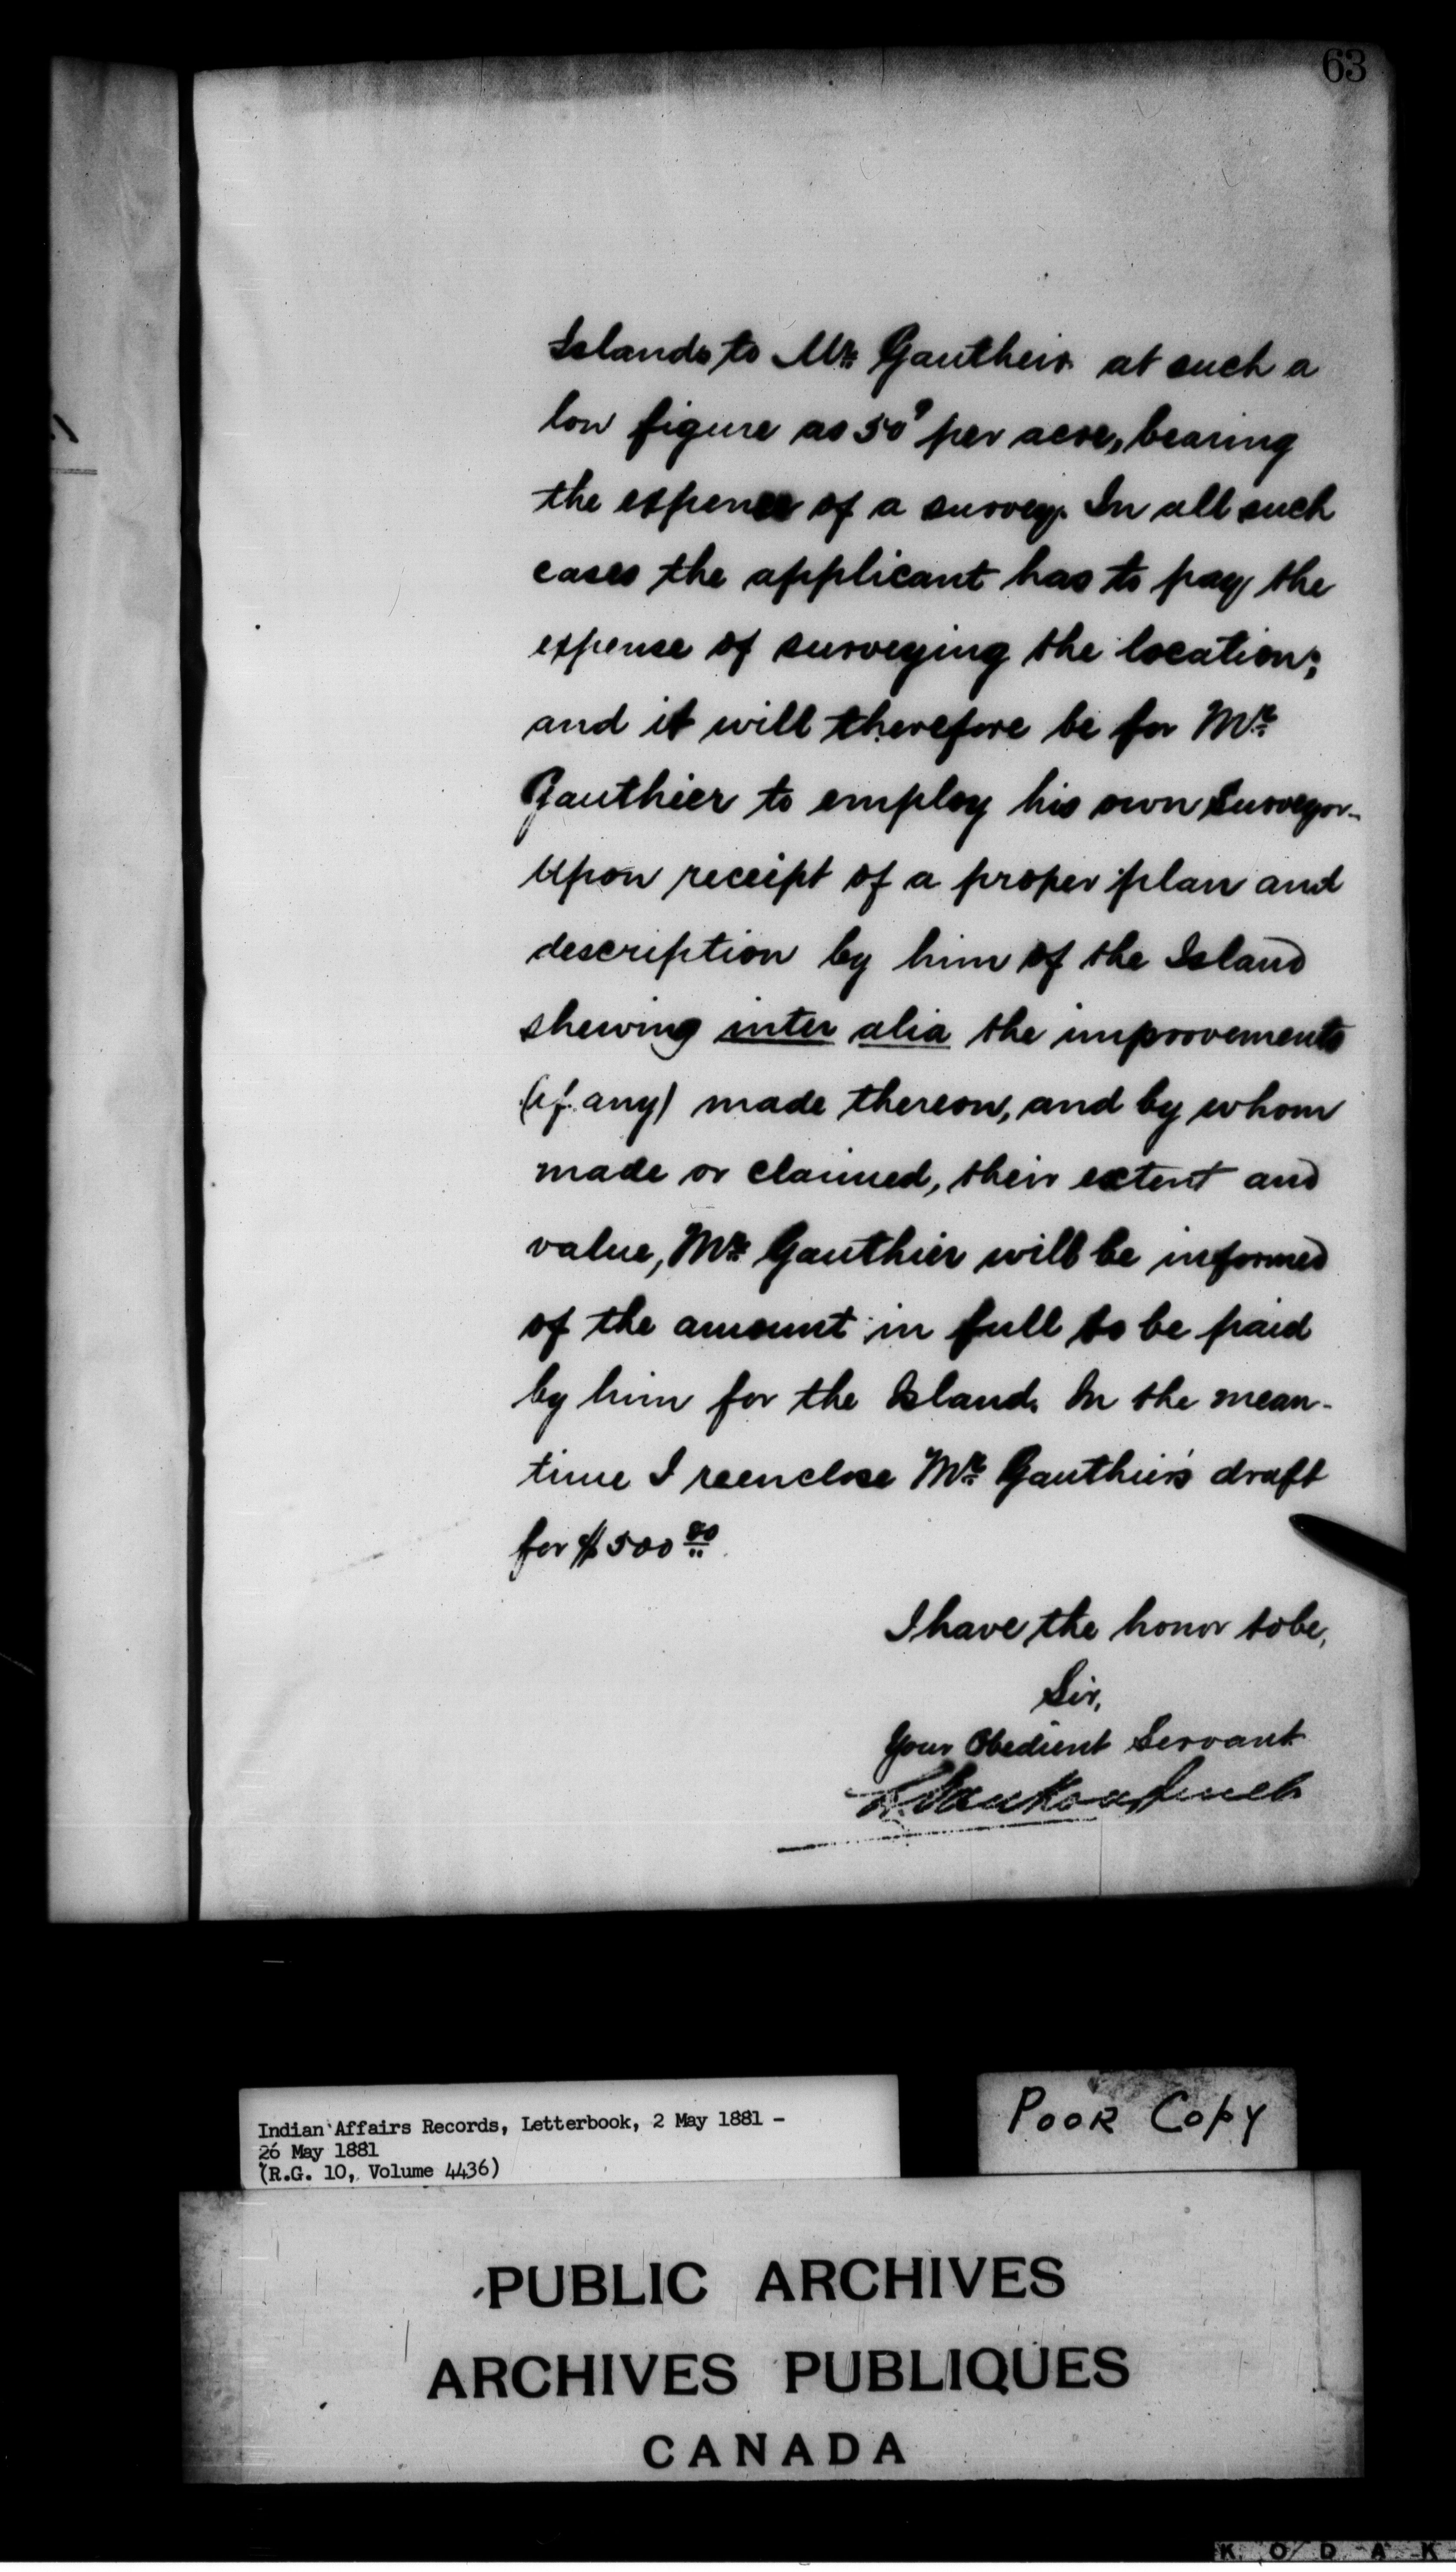 63
Islands to Mr. Gauthier at such a
low figure as 50¢ per acre, bearing
the expense of a survey. In all such
cases the applicant has to pay the
expense of surveying the location;
and it will therefore be for Mr.
Gauthier to employ his own Surveyor.
Upon receipt of a proper plan and
description by him of the Island
shewing inter alia the improvements
(if any) made thereon, and by whom
made or claimed, their extent and
value, Mr. Gauthier will be informed
of the amount in full to be paid
by him for the Island. In the mean-
time I reenclose Mr. Gauthier's draft
for $500 00
I have the honor to be,
Sir,
Your Obedient Servant
L. Vankoughnet
Indian Affairs Records, Letterbook, 2 May 1881 -
26 May 1881
(R.G. 10, Volume 4436)
POOR COPY
PUBLIC ARCHIVES
ARCHIVES PUBLIQUES
CANADA
KODAK